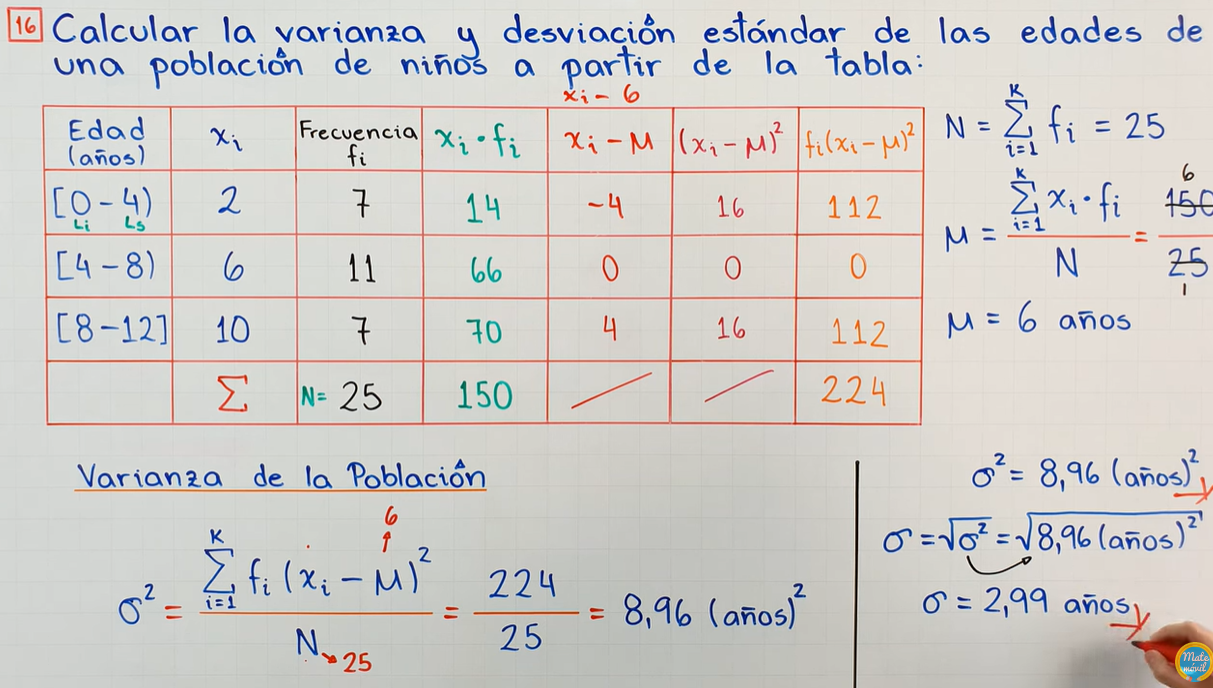 16 Calcular la varianza y desviación estándar de las edades de
una población de niños a partir de la tabla:
xi - 6
Edad (años) | xi | Frecuencia fi | xi · fi | xi - μ | (xi - μ)² | fi(xi - μ)²
[0 - 4) Li Ls | 2 | 7 | 14 | -4 | 16 | 112
[4 - 8) | 6 | 11 | 66 | 0 | 0 | 0
[8 - 12] | 10 | 7 | 70 | 4 | 16 | 112
Σ | N= 25 | 150 | 224
N = K Σ i=1 fi = 25
μ = K Σ i=1 xi · fi / N = 150 / 25
6
1
μ = 6 años
Varianza de la Población
σ² = K Σ i=1 fi (xi - μ)² / N = 224 / 25 = 8,96 (años)²
6
25
σ² = 8,96 (años)²
σ = √σ² = √8,96 (años)²
σ = 2,99 años
Mate
móvil